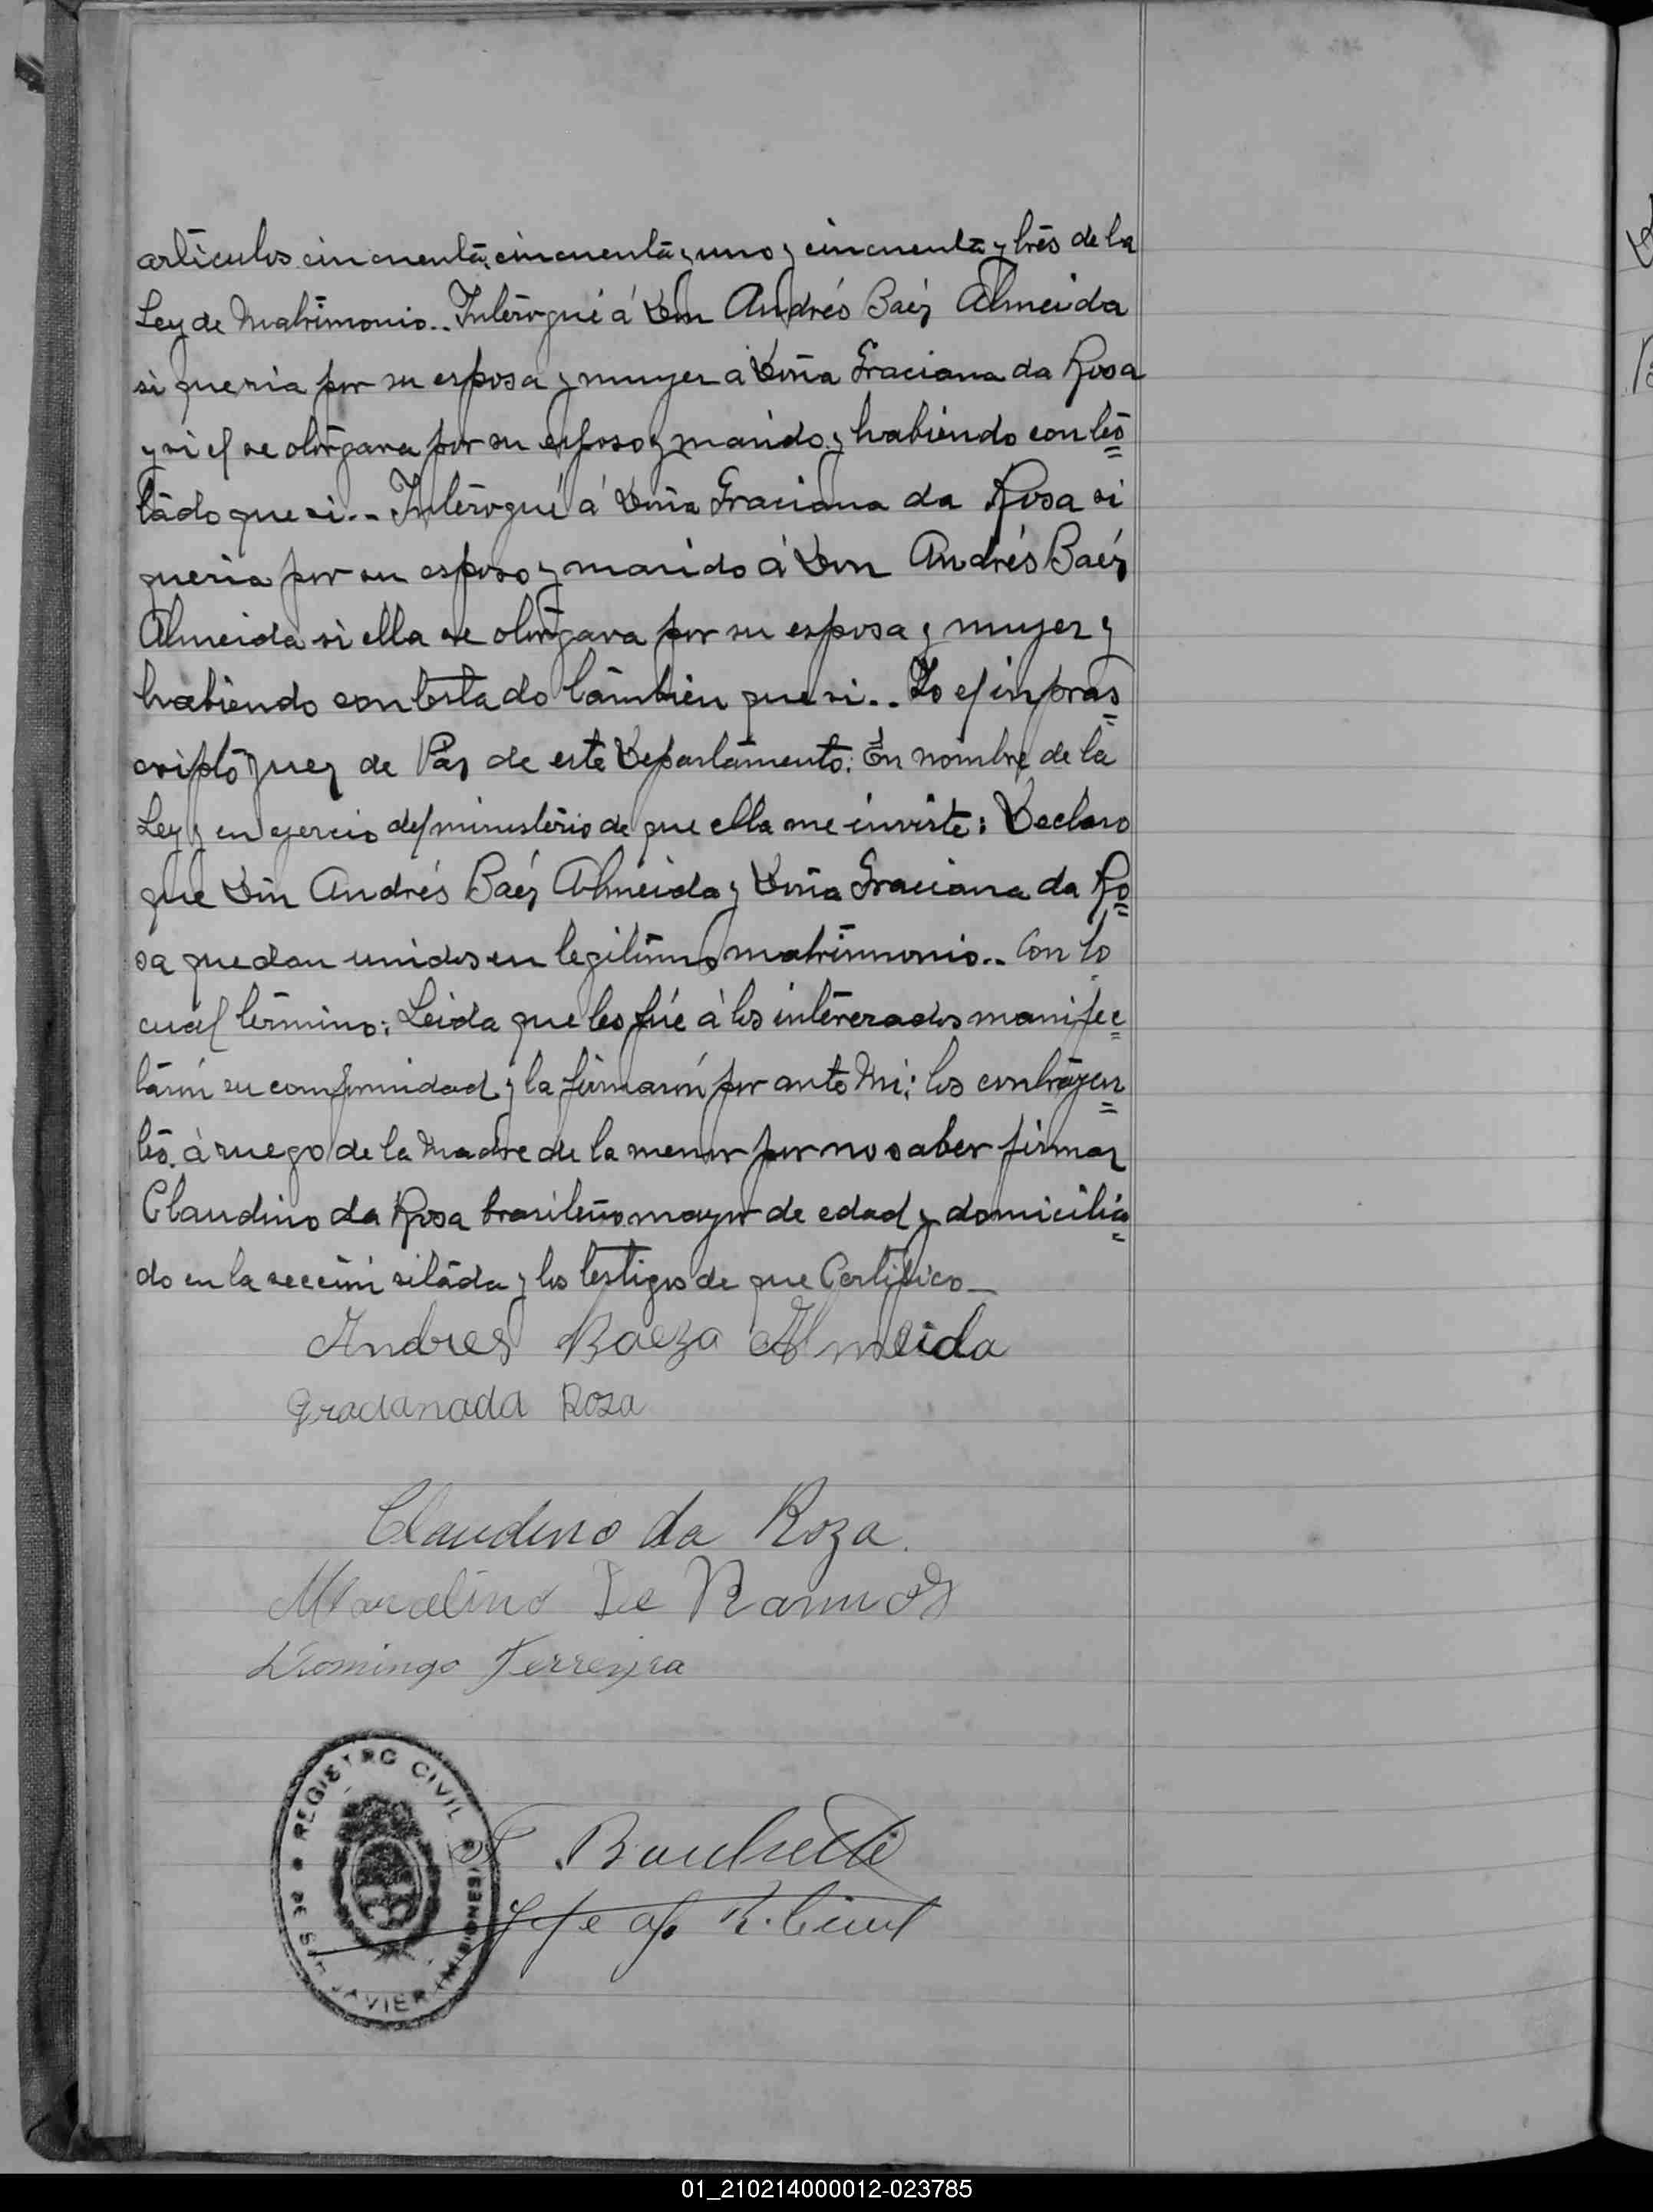 artículos cincuenta, cincuenta y uno y cincuenta y trés de la
Ley de Matrimonio.. Interogué á Don Andrés Baéz Almeida
si queria por su esposa y mujer a Doña Graciana da Rosa
y si el se otorgava por su esposo y marido y habiendo contes=
tado que si.. Interogué á Doña Graciana da Rosa si
queria por su esposo y marido á Don Andrés Baéz
Almeida si ella se otorgava por su esposa y mujer y
habiendo contestado también que si.. Yo el inpras=
cripto Juez de Paz de este Departamento: En nombre de la
Ley y en ejercio del ministerio de que ella me inviste: Declaro
que Don Andrés Baéz Almeida y Doña Graciana da Ro=
sa quedan unidos en legitimo matrimonio.. Con lo
cual término: Leida que les fué á los interezados manifes=
tarón su conformidad y la firmarón por ante Mi; los contrayen=
tes. á ruego de la Madre de la menor por no saber firmar
Claudino da Rosa brasileño mayor de edad y domicilia=
do en la sección sitada y los testigos de que Certifico_
Andres Baeza Almeida
gracianada Roza
Claudino da Roza.
Marcelino De Ramos
Domingo Ferreyra
REGISTRO CIVIL
DE SAN JAVIER (MISIONES)
Jefe of. R. Civil
01_210214000012-023785